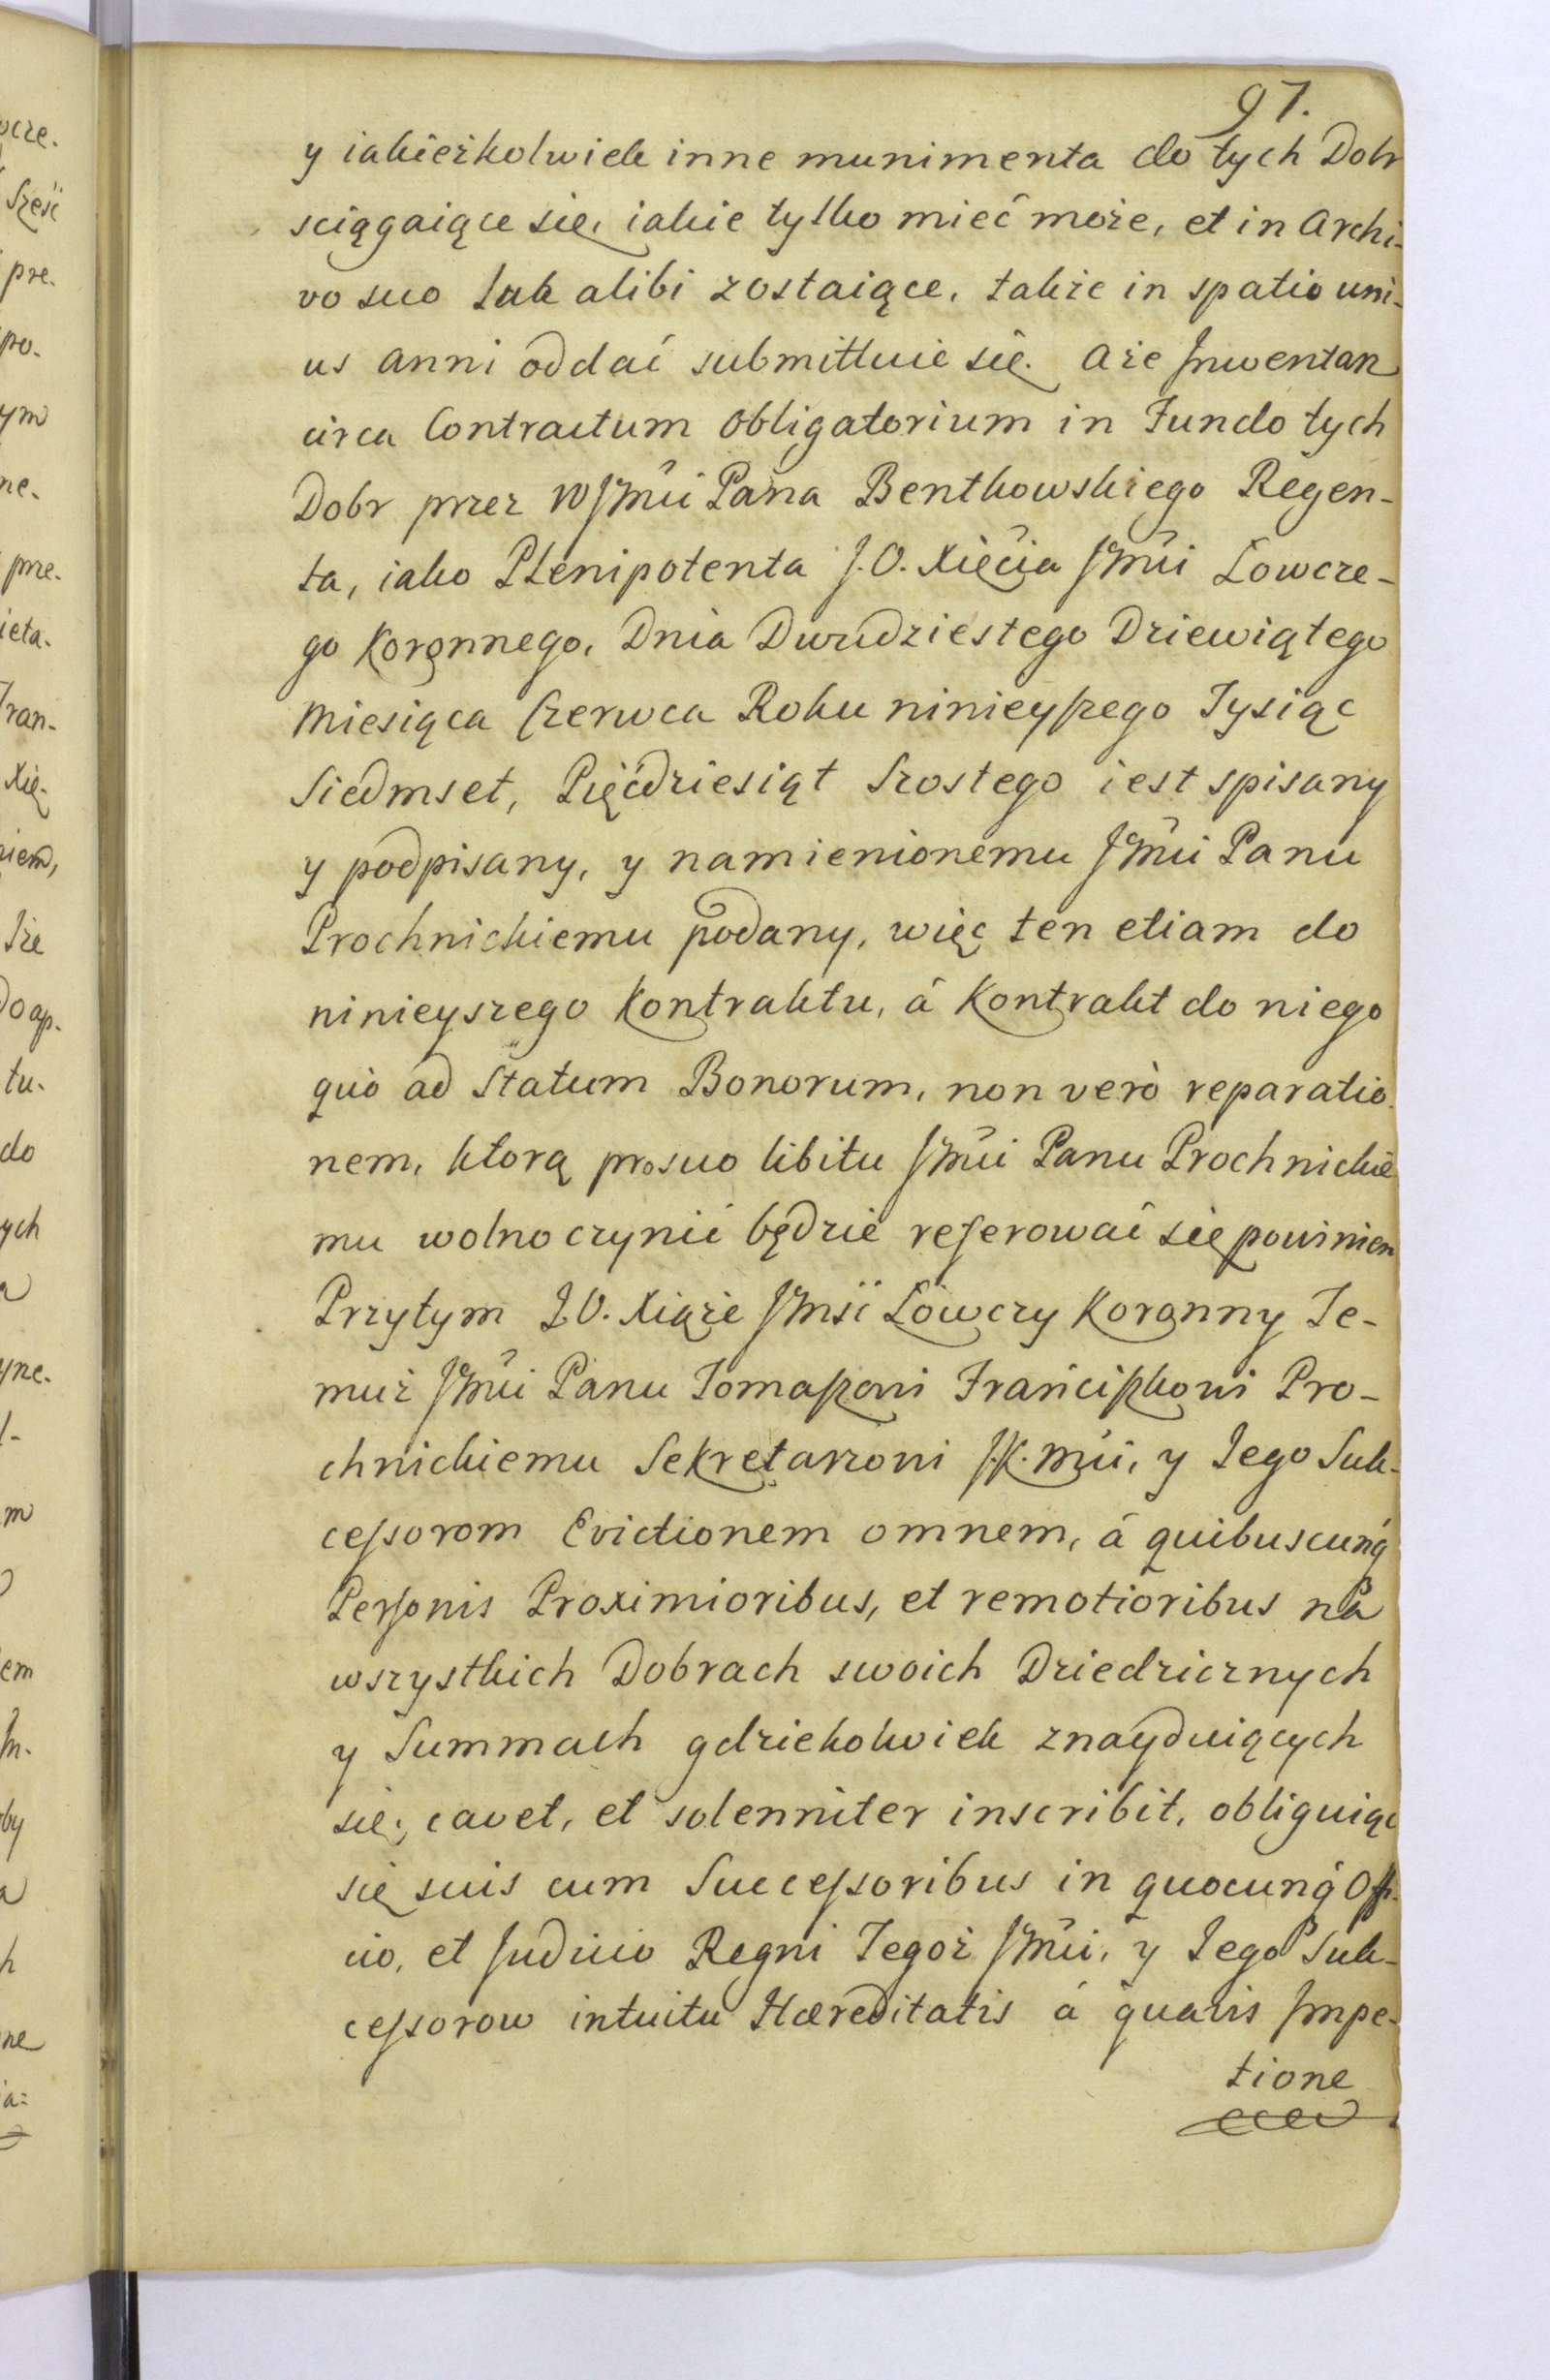 97.
y iakieżkolwiek inne munimenta do tych Dobr
sciągaiące się, iakie tylko mieć może, et in Archi-
vo suo lub alibi zostaiące, także in spatio uni-
us anni oddać submittuie się. A że Inwentarz
circa Contractum obligatorium in Fundo tych
Dobr przez WJmći Pana Bentkowskiego Regen-
ta, iako Plenipotenta J.O. Xięcia Jmći Łowcze-
go Koronnego, Dnia Dwudziestego Dziewiątego
Miesiąca Czerwca Roku ninieyszego Tysiąc
Siedmset, Pięćdziesiąt Szostego iest spisany
y podpisany, y namienionemu Jmći Panu
Prochnickiemu podany, więc ten etiam do
ninieyszego Kontraktu, á Kontrakt do niego
quò ad Statum Bonorum, non verò reparatio-
nem, ktorą pro suo libitu Jmći Panu Prochnickie
mu wolno czynić będzie referować się powinien
Przytym J.O. Xiąże Jmść Łowczy Koronny Te-
muż Jmći Panu Tomaszowi Franciszkowi Pro-
chnickiemu Sekretarzowi J.K.Mći, y Jego Suk-
cessorom Evictionem omnem, á quibuscunq́
Personis Proximioribus, et remotioribus na
wszystkich Dobrach swoich Dziedzicznych
y Summach gdziekolwiek znayduiących
się, cavet, et solenniter inscribit, obliguiąc
się suis cum Successoribus in quocunq́ Offi-
cio, et Judicio Regni Tegoż Jmći, y Jego Suk-
cessorow intuitu Hæreditatis á quavis Impe-
tione